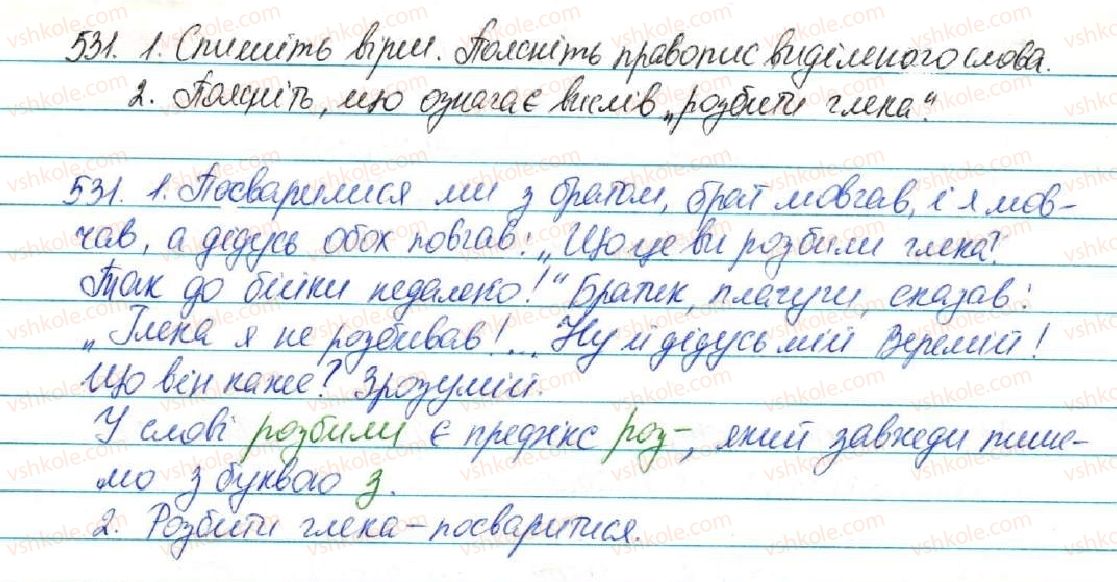 531. 1. Спишіть вірш. Поясніть правопис виділеного слова.
2. Поясніть, що означає вислів „розбити глека“.
531. 1. Посварилися ми з братом, брат мовчав, і я мов-
чав, а дідусь обок повчав: „Що це ви розбили глека?
Так до бійки недалеко!“ Братик, плачучи, сказав:
„Глека я не розбивав!... Ну й дідусь мій Веремій!
Що він каже? Зрозумій.
У слові розбили є префікс роз-, який завжди пише-
мо з буквою з.
2. Розбити глека – посваритися.